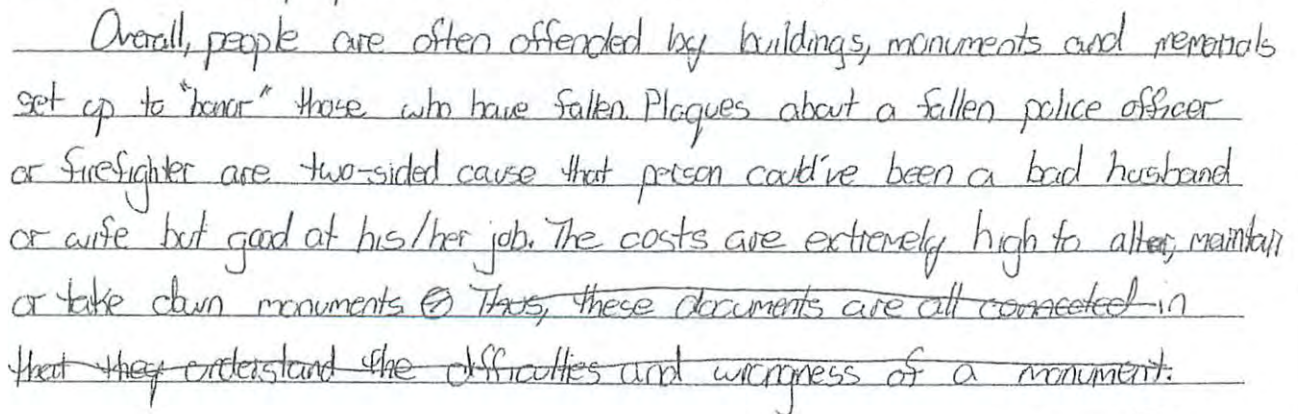 Overall, people are often offended by buildings, monuments and memorials
set up to "honor" those who have fallen. Plaques about a fallen police officer
or firefighter are two-sided cause that person could've been a bad husband
or wife but good at his/her job. The costs are extremely high to alter, maintain
or take down monuments. Thus, these documents are all connected in
that they understand the difficulties and wrongness of a monument.